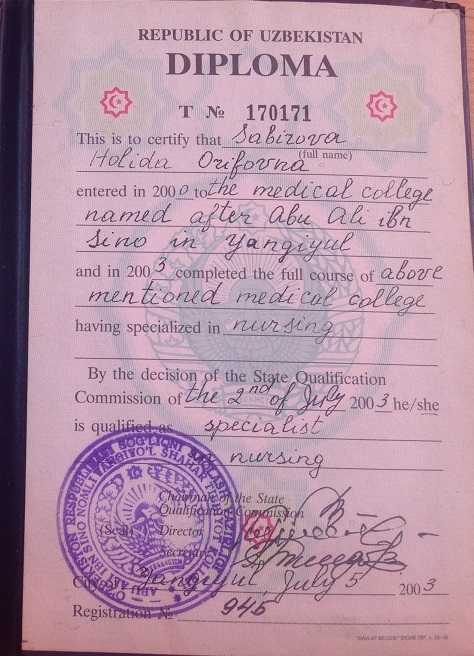 REPUBLIC OF UZBEKISTAN
DIPLOMA
T № 170171
This is to certify that Sabirova
Holida Orifovna (full name)
entered in 2000 to the medical college
named after Abu Ali ibn
Sino in Yangiyul
and in 2003 completed the full course of above
mentioned medical college
having specialized in nursing
By the decision of the State Qualification
Commission of the 2nd of July 2003 he/she
is qualified as specialist
nursing
Chairman of the State
Qualification Commission
(Seal) Director
Secretary
City of Yangiyul, July 5 2003
Registration № 946